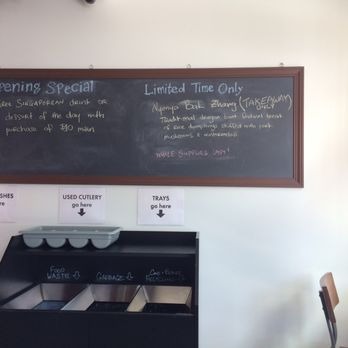 pening Special
ree SINGAPOREAN drink or
dessert of the day with
purchase of $10 main
Limited Time Only
Nyonya Bak Zhang (TAKEAWAY ONLY)
Traditional dragon boat festival treat
of rice dumplings stuffed with pork
mushrooms & wintermelon
WHILE SUPPLIES LAST!
SHES
here
USED CUTLERY
go here
TRAYS
go here
FOOD
WASTE
GARBAGE
RECYCLING